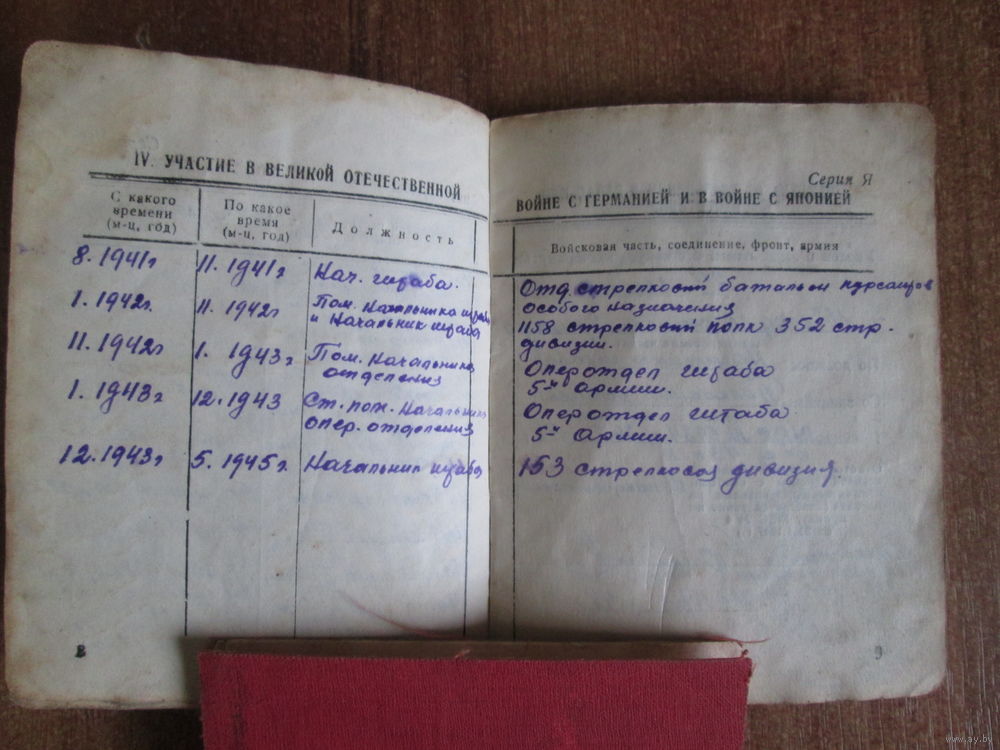 IV. УЧАСТИЕ В ВЕЛИКОЙ ОТЕЧЕСТВЕННОЙ
С какого времени (м-ц, год)
По какое время (м-ц, год)
Должность
8. 1941г 11. 1941г Нач. штаба.
1. 1942г. 11. 1942г Пом. Начальника штаба
и Начальник штаба
11. 1942г 1. 1943г Пом. Начальника
отделения
1. 1943г 12. 1943 Ст. пом. Начальника
опер. отделения
12. 1943г 5. 1945г. Начальник штаба
8
Серия Я
ВОЙНЕ С ГЕРМАНИЕЙ И В ВОЙНЕ С ЯПОНИЕЙ
Войсковая часть, соединение, фронт, армия
Отд. стрелковый батальон курсантов
особого назначения
1158 стрелковый полк 352 стр.
дивизии.
Оперотдел штаба
5-й армии.
Оперотдел штаба
5-й Армии.
153 стрелковая дивизия.
9
www.ay.by